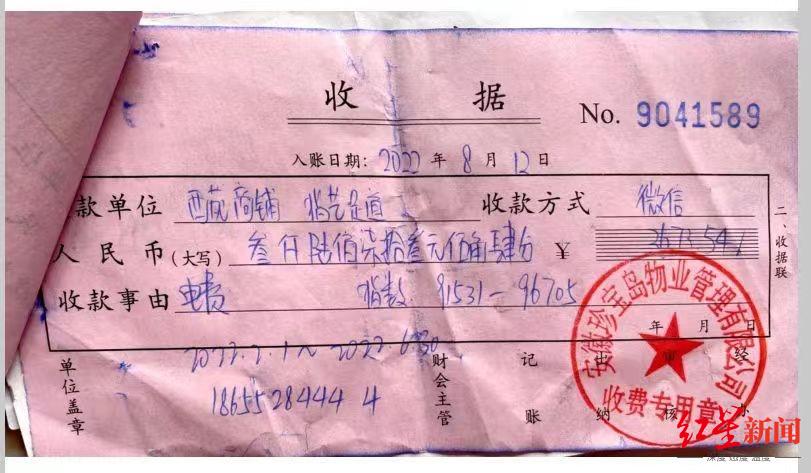 收 据
No. 9041589
入账日期: 2022 年 8 月 12 日
款单位 西苑商铺 指艺足道 收款方式 微信
人民币(大写) 叁仟陆佰柒拾叁元伍角肆分 ¥ 3673.54
收款事由 电费 指数 91531-96705
年 月 日
2022.2.1~2022.6.30
18655284444
单位盖章
财会主管
记账
出纳
审核
经办
二、收据联
安徽珍宝岛物业管理有限公司
收费专用章
红星新闻
深度 态度 温度